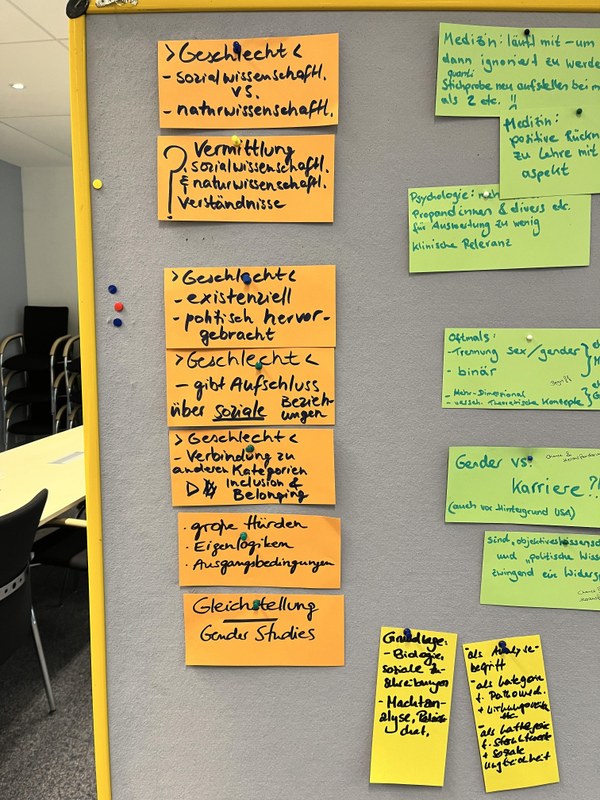 >Geschlecht<
- sozialwissenschaftl.
vs.
- naturwissenschaftl.
? Vermittlung
sozialwissenschaftl.
& naturwissenschaftl.
Verständnisse
>Geschlecht<
- existenziell
- politisch hervor-
gebracht
>Geschlecht<
- gibt Aufschluss
über soziale Bezieh-
ungen
>Geschlecht<
- Verbindung zu
anderen Kategorien
Inclusion &
Belonging
· große Hürden
· Eigenlogiken
· Ausgangsbedingungen
Gleichstellung
Gender Studies
Medizin: läuft mit – um
dann ignoriert zu werde
quanti
Stichprobe neu aufstellen bei m
als 2 etc. !!
Medizin:
positive Rückm
zu Lehre mit
aspekt
Psychologie:
Propand:innen & divers etc.
für Auswertung zu wenig
klinische Relevanz
Oftmals:
- Trennung sex/gender
- binär
- Mehr-Dimensional
- versch. theoretische Konzepte
Gender vs.
Karriere?!
(auch vor Hintergrund USA)
sind „objektives
und „politische Wiss
zwingend ein Widers
Grundlage:
- Biologie,
soziale Zu-
schreibungen
- Machtan-
alyse,
als Analyse-
begriff
- als Kategorie
f.
+
etc.
- als Kategorie
f.
+ soziale
Ungleichheit